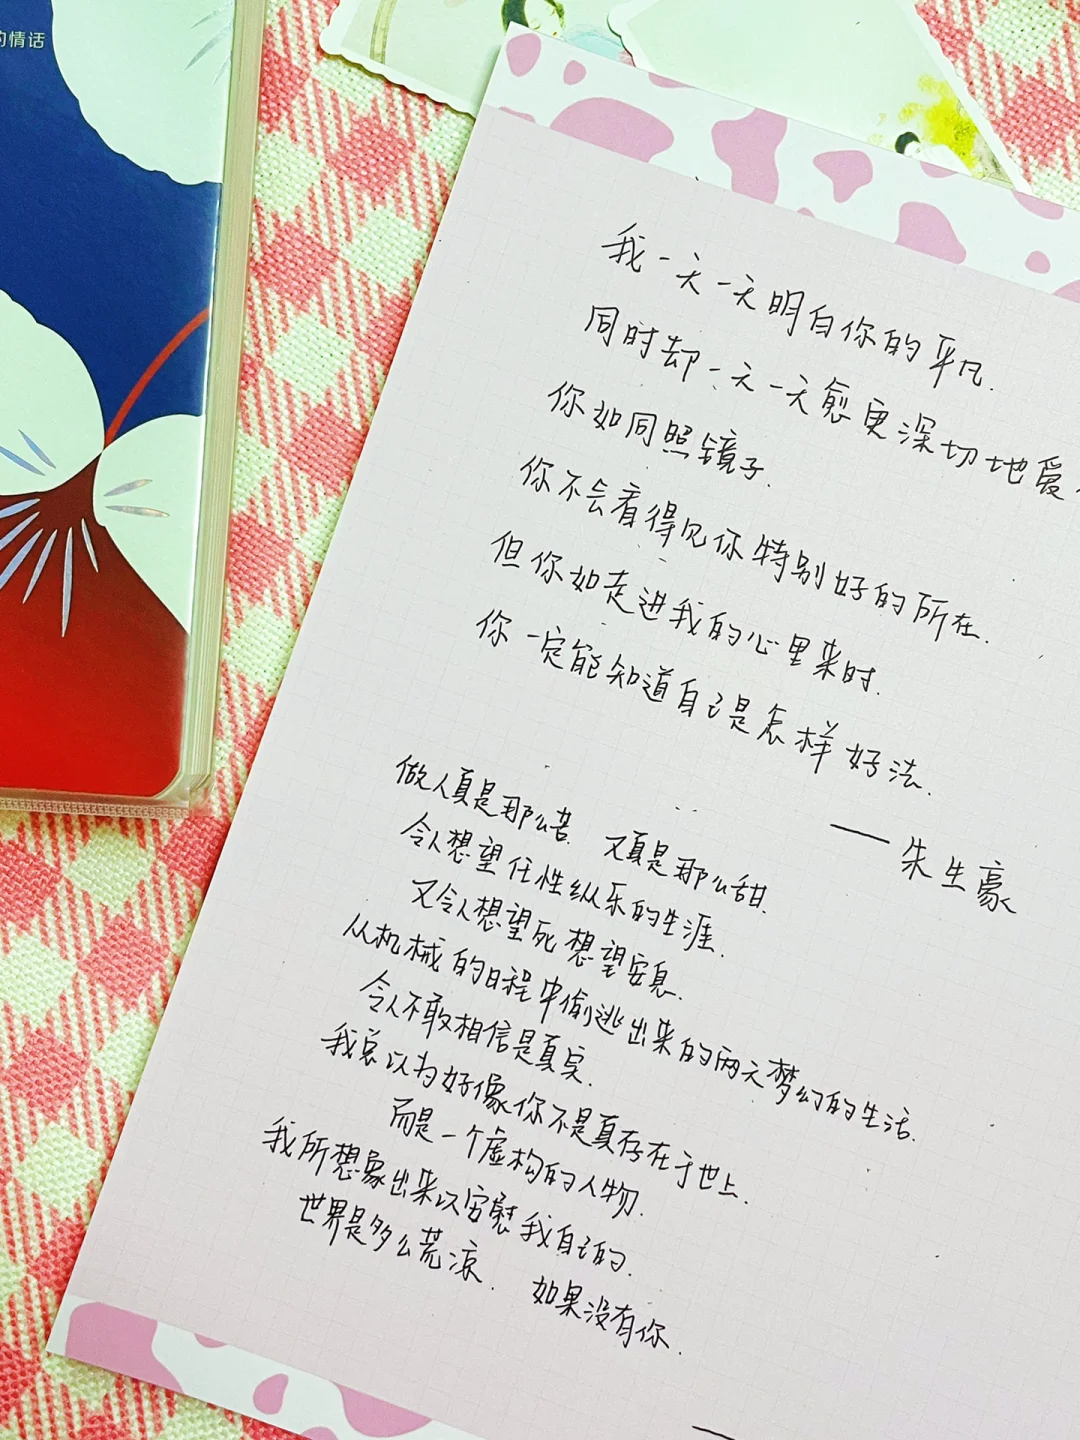 的情话
我一天一天明白你的平凡.
同时却一天一天愈更深切地爱
你如同照镜子.
你不会看得见你特别好的所在.
但你如走进我的心里来时.
你一定能知道自己是怎样好法.
——朱生豪
做人真是那么苦. 又真是那么甜.
令人想望任性纵乐的生涯.
又令人想望死想望安息.
从机械的日程中偷逃出来的两天梦幻的生活.
令人不敢相信是真实.
我总以为好像你不是真存在于世上.
而是一个虚构的人物.
我所想象出来以安慰我自己的.
世界是多么荒凉. 如果没有你.